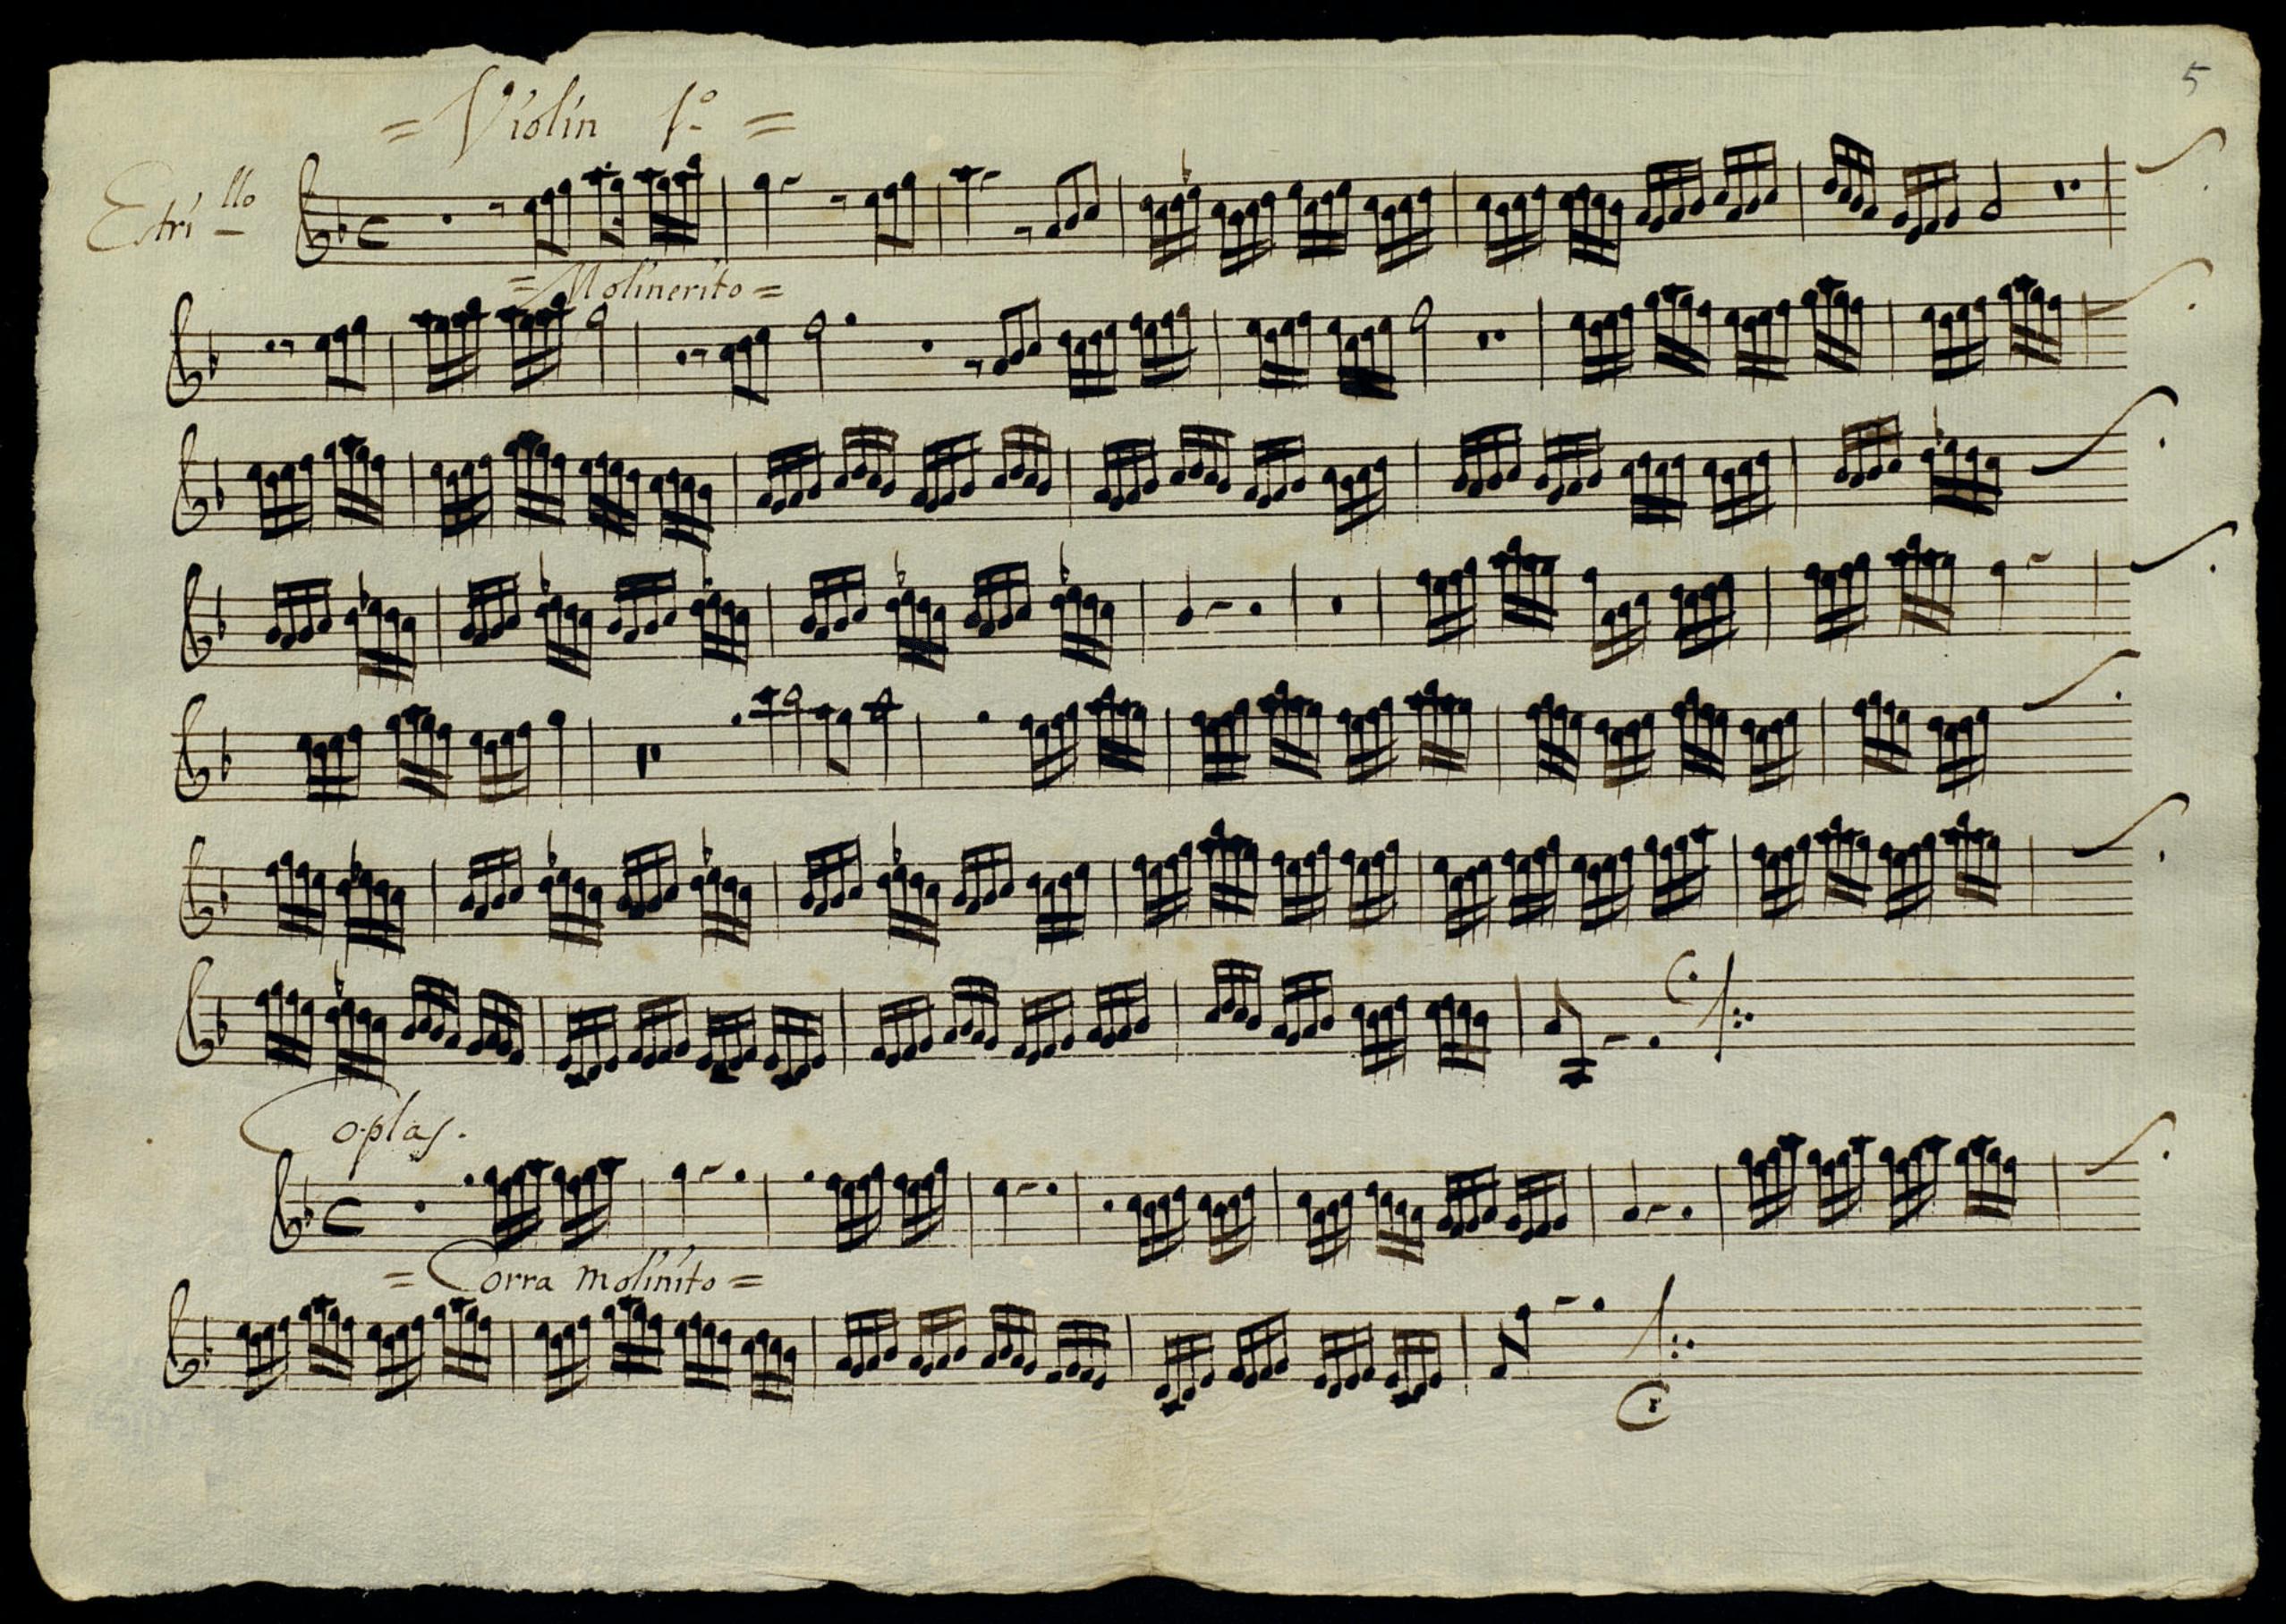 5
= Violin 1º =
Estri^llo
= Molinerito =
Coplas.
= Corra molinito =